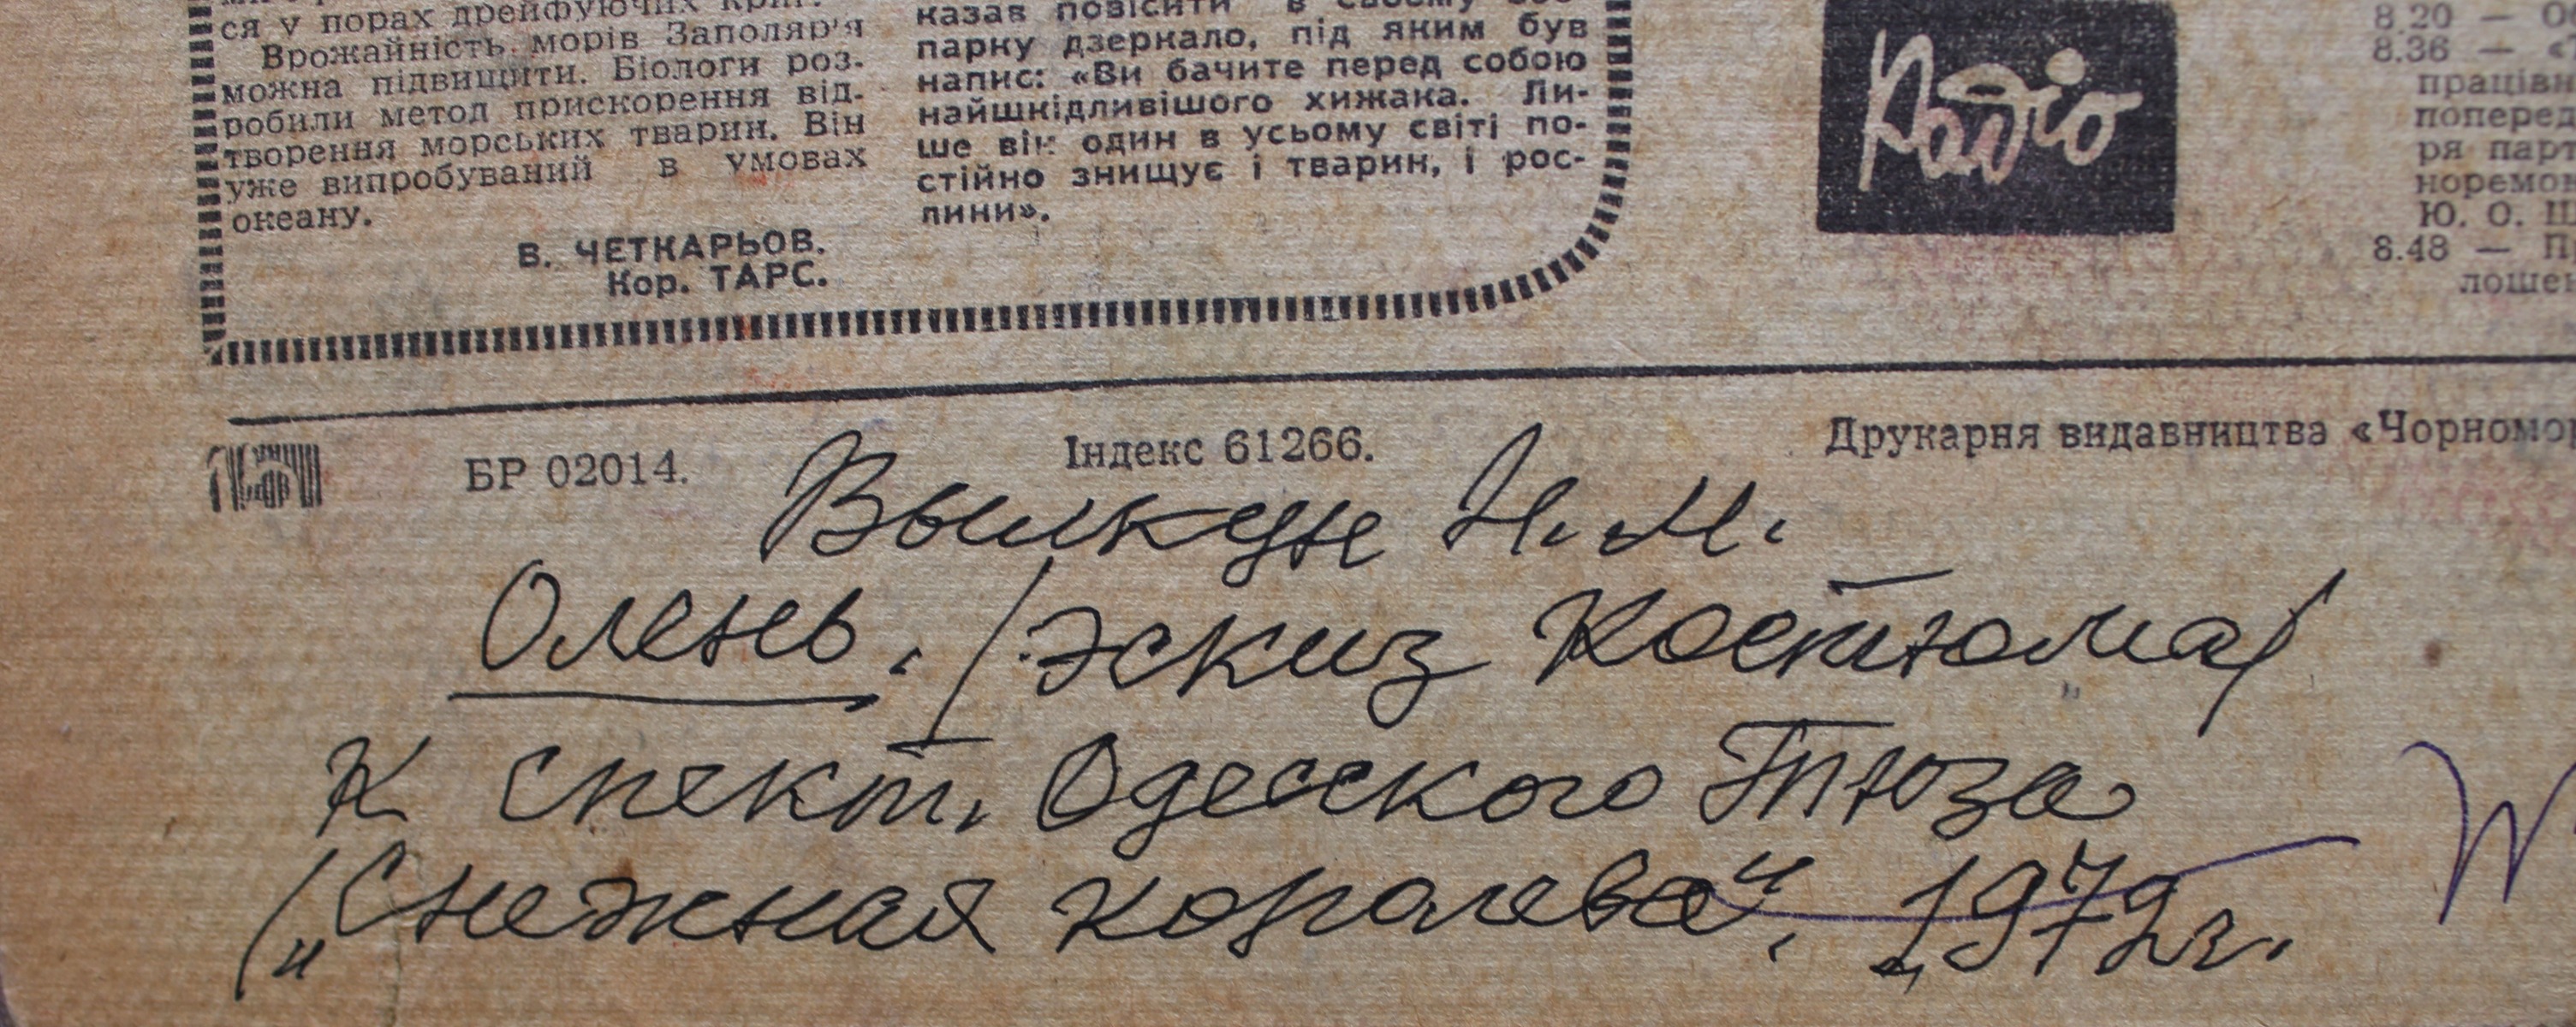 ся у порах дрейфуючих криг.
Врожайність морів Заполяр'я
можна підвищити. Біологи роз-
робили метод прискорення від-
творення морських тварин. Він
уже випробуваний в умовах
океану.
В. ЧЕТКАРЬОВ.
Кор. ТАРС.
казав повісити в своєму
парку дзеркало, під яким був
напис: «Ви бачите перед собою
найшкідливішого хижака. Ли-
ше він один в усьому світі по-
стійно знищує і тварин, і рос-
лини».
Радіо
8.20 — О
8.36 — «
працівн
поперед
ря парт
норемон
Ю. О. Ш
8.48 — П
лошен
БР 02014.
Індекс 61266.
Друкарня видавництва «Чорномо
Вылкун Н. М.
Олень. /Эскиз костюма/
К спект. Одесского Тюза
(„Снежная королева". 1972г.